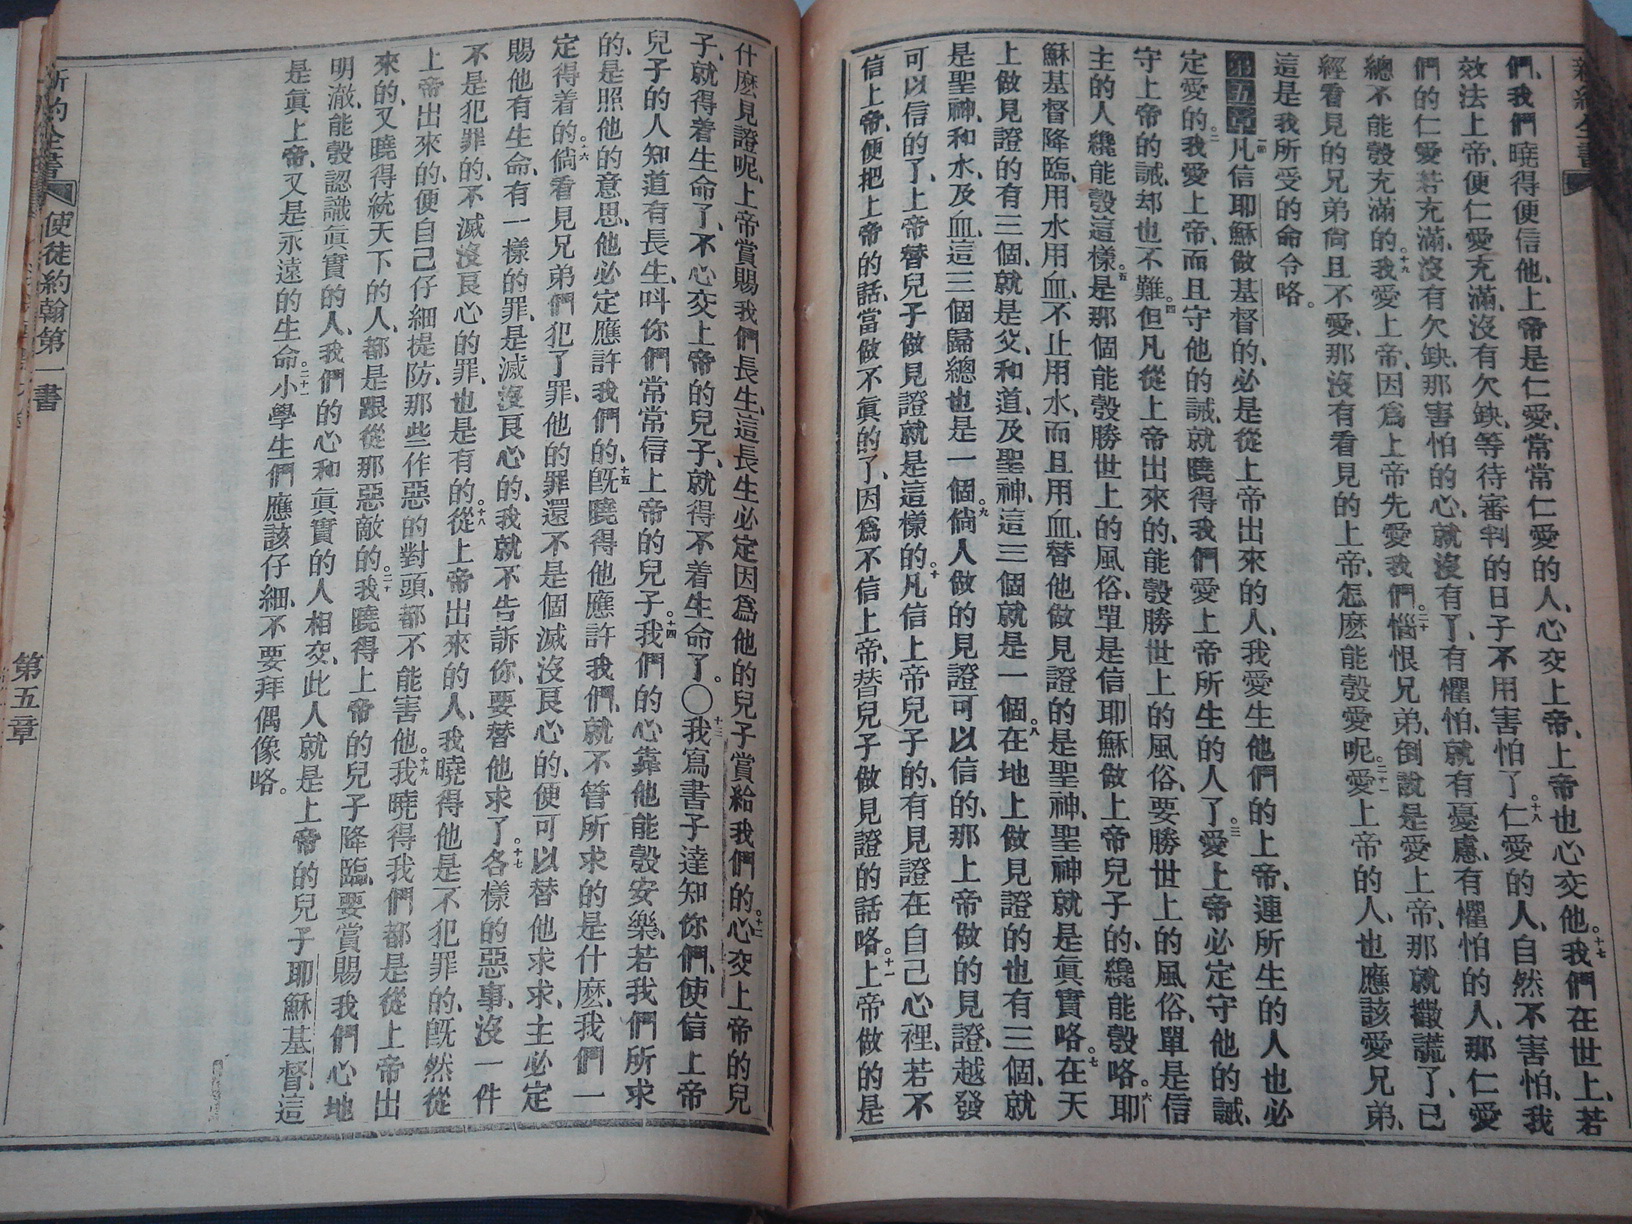 新約全書
們、我們曉得便信他、上帝是仁愛、常常仁愛的人、心交上帝、上帝也心交他。十七我們在世上、若
效法上帝、便仁愛充滿、沒有欠缺、等待審判的日子不用害怕了。十八仁愛的人、自然不害怕、我
們的仁愛若充滿、沒有欠缺、那害怕的心、就沒有了、有懼怕、就有憂慮、有懼怕的人、那仁愛
總不能彀充滿的。十九我愛上帝、因爲上帝先愛我們。二十惱恨兄弟、倒說是愛上帝、那就撒謊了、已
經看見的兄弟尙且不愛、那沒有看見的上帝、怎麽能彀愛呢。二十一愛上帝的人、也應該愛兄弟、
這是我所受的命令咯。
第五章一節凡信耶穌做基督的、必是從上帝出來的人、我愛生他們的上帝、連所生的人也必
定愛的。二我愛上帝、而且守他的誡、就曉得我們愛上帝所生的人了。三愛上帝必定守他的誡、
守上帝的誡、却也不難。四但凡從上帝出來的、能彀勝世上的風俗、要勝世上的風俗、單是信
主的人纔能彀這樣。五是那個能彀勝世上的風俗、單是信耶穌做上帝兒子的、纔能彀咯。六耶
穌基督降臨、用水用血、不止用水、而且用血、替他做見證的是聖神、聖神就是眞實咯。七在天
上做見證的有三個、就是父、和道、及聖神、這三個就是一個。八在地上做見證的也有三個、就
是聖神、和水、及血、這三個歸總也是一個。九倘人做的見證可以信的、那上帝做的見證、越發
可以信的了、上帝替兒子做見證就是這樣的。十凡信上帝兒子的、有見證在自己心裡、若不
信上帝、便把上帝的話、當做不眞的了、因爲不信上帝、替兒子做見證的話咯。十一上帝做的是
什麽見證呢、上帝賞賜我們長生、這長生必定因爲他的兒子賞給我們的。十二心交上帝的兒
子、就得着生命了、不心交上帝的兒子、就得不着生命了。〇十三我寫書子達知你們、使信上帝
兒子的人知道有長生、呌你們常常信上帝的兒子。十四我們的心靠他能彀安樂、若我們所求
的、是照他的意思、他必定應許我們的。十五旣曉得他應許我們、就不管所求的是什麽、我們一
定得着的。十六倘看見兄弟們犯了罪、他的罪還不是個滅沒良心的、便可以替他求求、主必定
賜他有生命、有一樣的罪、是滅沒良心的、我就不告訴你、要替他求了。十七各樣的惡事、沒一件
不是犯罪的、不滅沒良心的罪、也是有的。十八從上帝出來的人、我曉得他是不犯罪的、旣然從
上帝出來的、便自己仔細提防、那些作惡的對頭、都不能害他。十九我曉得我們都是從上帝出
來的、又曉得統天下的人、都是跟從那惡敵的。二十我曉得上帝的兒子降臨、要賞賜我們心地
明澈、能彀認識眞實的人、我們的心和眞實的人相交、此人就是上帝的兒子耶穌基督、這
是眞上帝、又是永遠的生命。二十一小學生們應該仔細、不要拜偶像咯。
新約全書 使徒約翰第一書 第五章